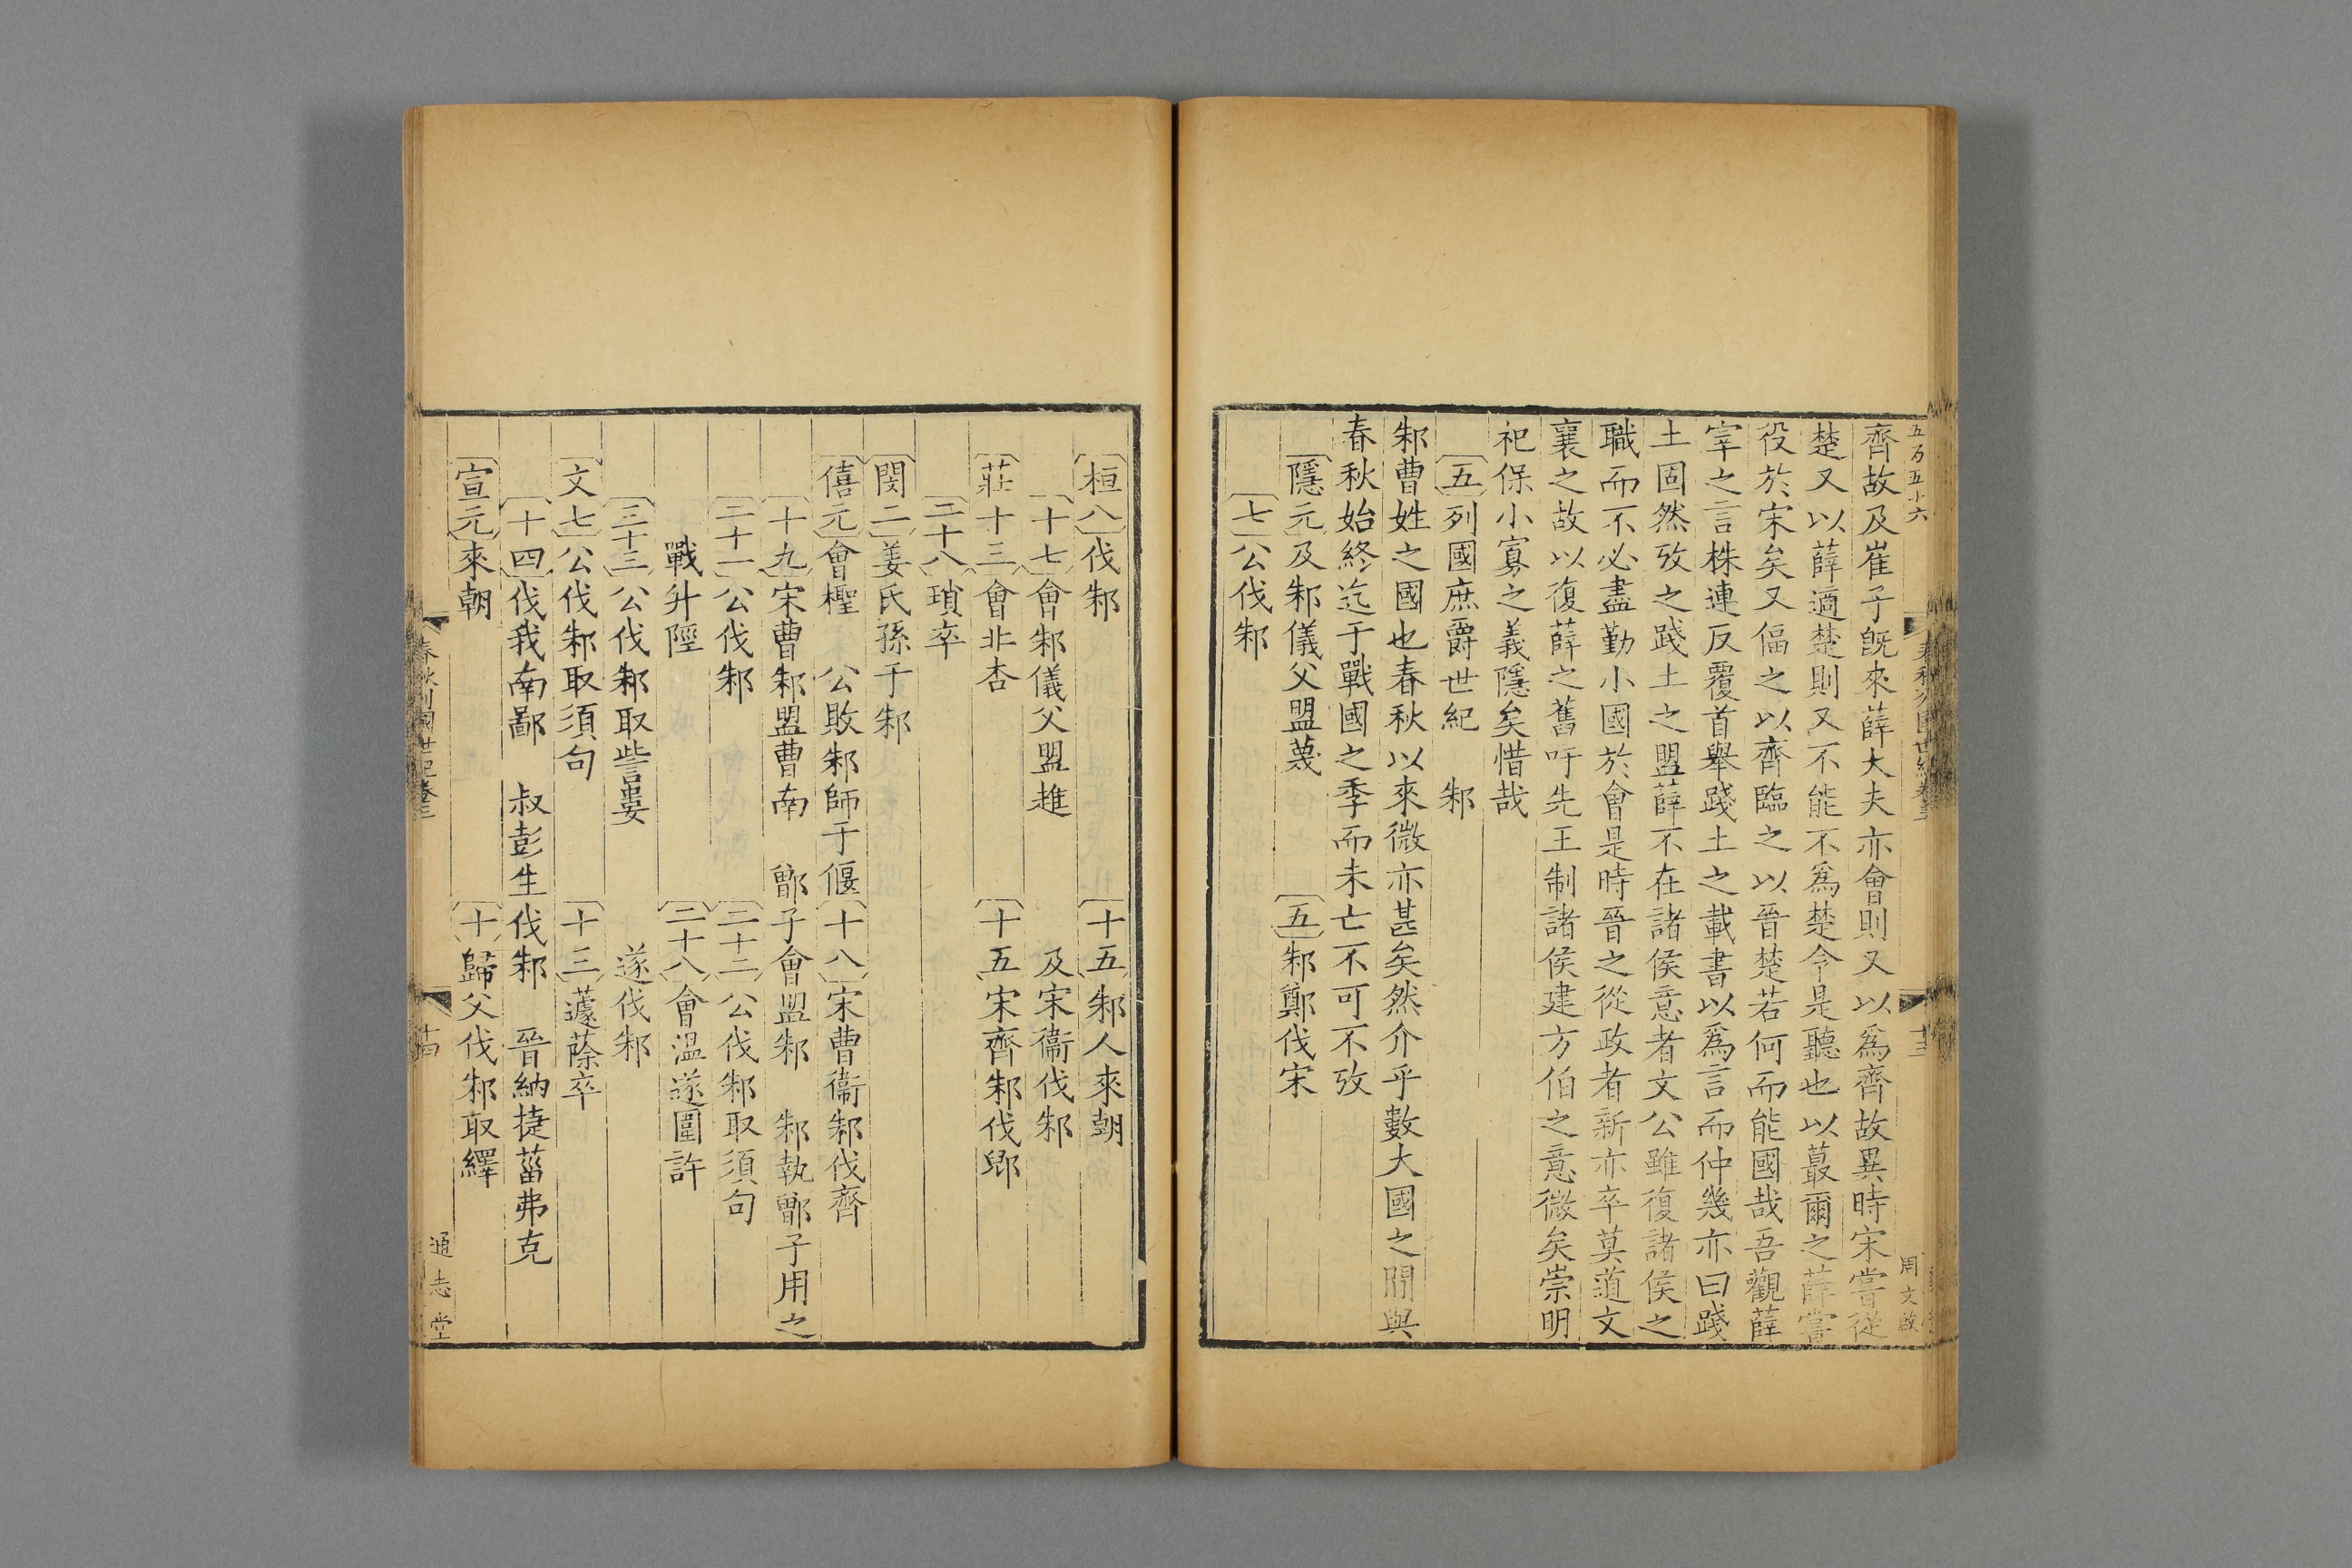 五百五十六
齊故及崔子旣來薛大夫亦會則又以爲齊故異時宋嘗從
楚又以薛適楚則又不能不爲楚令是聽也以蕞爾之薛嘗
役於宋矣又偪之以齊臨之以晉楚若何而能國哉吾觀薛
宰之言株連反覆首舉踐土之載書以爲言而仲幾亦曰踐
土固然攷之踐土之盟薛不在諸侯意者文公雖復諸侯之
職而不必盡勤小國於會是時晉之從政者新亦卒莫遵文
襄之故以復薛之舊吁先王制諸侯建方伯之意微矣崇明
祀保小寡之義隱矣惜哉
五列國庶爵世紀 邾
邾曹姓之國也春秋以來微亦甚矣然介乎數大國之閒與
春秋始終迄于戰國之季而未亡不可不攷
隱元及邾儀父盟蔑 五邾鄭伐宋
七公伐邾
周文啟
桓八伐邾 十五邾人來朝
十七會邾儀父盟趡 及宋衞伐邾
莊十三會北杏 十五宋齊邾伐郳
二十八瑣卒
閔二姜氏孫于邾
僖元會檉 公敗邾師于偃 十八宋曹衞邾伐齊
十九宋曹邾盟曹南 鄫子會盟邾 邾執鄫子用之
二十一公伐邾 二十二公伐邾取須句
戰升陘 二十八會温遂圍許
三十三公伐邾取訾婁 遂伐邾
文七公伐邾取須句 十三蘧蒢卒
十四伐我南鄙 叔彭生伐邾 晉納捷菑弗克
宣元來朝 十歸父伐邾取繹
春秋列國世紀卷三
十四
通志堂